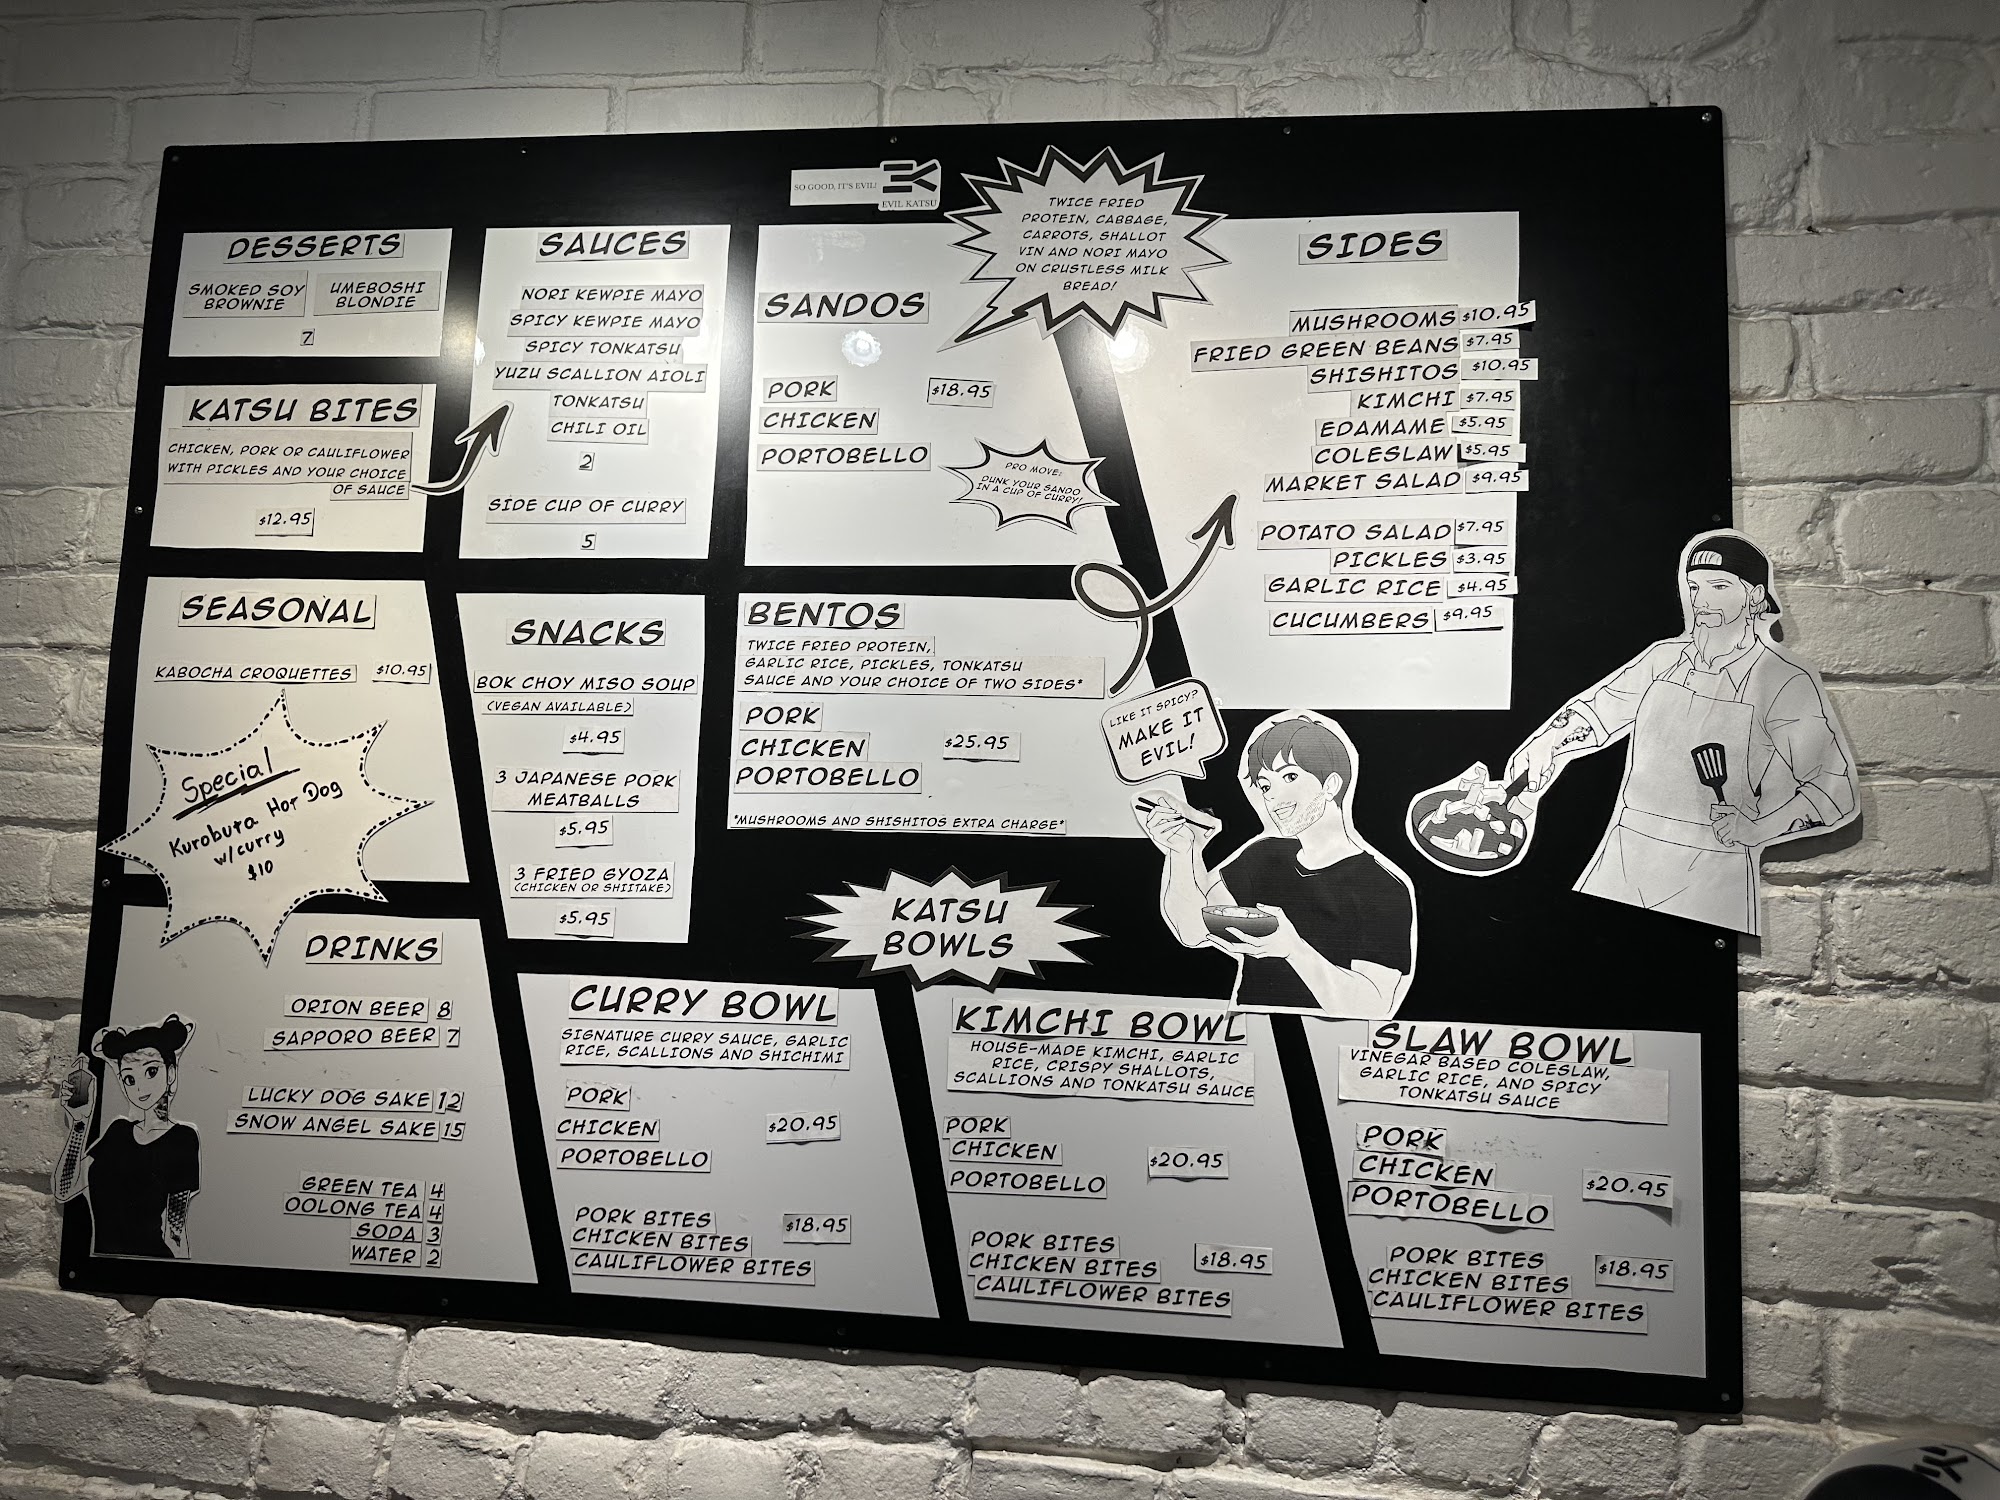 SO GOOD, IT'S EVIL!
EVIL KATSU
TWICE FRIED
PROTEIN, CABBAGE,
CARROTS, SHALLOT
VIN AND NORI MAYO
ON CRUSTLESS MILK
BREAD!
DESSERTS
SMOKED SOY
BROWNIE
UMEBOSHI
BLONDIE
7
KATSU BITES
CHICKEN, PORK OR CAULIFLOWER
WITH PICKLES AND YOUR CHOICE
OF SAUCE
$12.95
SAUCES
NORI KEWPIE MAYO
SPICY KEWPIE MAYO
SPICY TONKATSU
YUZU SCALLION AIOLI
TONKATSU
CHILI OIL
2
SIDE CUP OF CURRY
5
SANDOS
PORK $18.95
CHICKEN
PORTOBELLO
PRO MOVE:
DUNK YOUR SANDO
IN A CUP OF CURRY!
SIDES
MUSHROOMS $10.95
FRIED GREEN BEANS $7.95
SHISHITOS $10.95
KIMCHI $7.95
EDAMAME $5.95
COLESLAW $5.95
MARKET SALAD $9.95
POTATO SALAD $7.95
PICKLES $3.95
GARLIC RICE $4.95
CUCUMBERS $9.95
SEASONAL
KABOCHA CROQUETTES $10.95
Special
Kurobuta Hot Dog
w/curry
$10
SNACKS
BOK CHOY MISO SOUP
(VEGAN AVAILABLE)
$4.95
3 JAPANESE PORK
MEATBALLS
$5.95
3 FRIED GYOZA
(CHICKEN OR SHIITAKE)
$5.95
BENTOS
TWICE FRIED PROTEIN,
GARLIC RICE, PICKLES, TONKATSU
SAUCE AND YOUR CHOICE OF TWO SIDES*
PORK
CHICKEN $25.95
PORTOBELLO
*MUSHROOMS AND SHISHITOS EXTRA CHARGE*
LIKE IT SPICY?
MAKE IT
EVIL!
DRINKS
ORION BEER 8
SAPPORO BEER 7
LUCKY DOG SAKE 12
SNOW ANGEL SAKE 15
GREEN TEA 4
OOLONG TEA 4
SODA 3
WATER 2
KATSU
BOWLS
CURRY BOWL
SIGNATURE CURRY SAUCE, GARLIC
RICE, SCALLIONS AND SHICHIMI
PORK
CHICKEN $20.95
PORTOBELLO
PORK BITES $18.95
CHICKEN BITES
CAULIFLOWER BITES
KIMCHI BOWL
HOUSE-MADE KIMCHI, GARLIC
RICE, CRISPY SHALLOTS,
SCALLIONS AND TONKATSU SAUCE
PORK
CHICKEN $20.95
PORTOBELLO
PORK BITES
CHICKEN BITES $18.95
CAULIFLOWER BITES
SLAW BOWL
VINEGAR BASED COLESLAW,
GARLIC RICE, AND SPICY
TONKATSU SAUCE
PORK
CHICKEN $20.95
PORTOBELLO
PORK BITES
CHICKEN BITES $18.95
CAULIFLOWER BITES